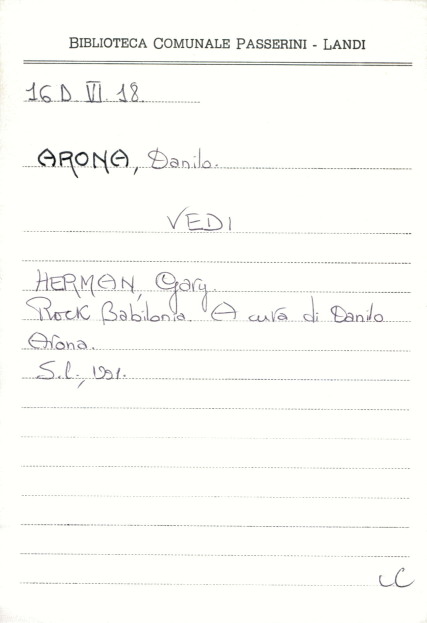 BIBLIOTECA COMUNALE PASSERINI - LANDI
16 D. VI. 18.
ARONA, Danilo.
VEDI
HERMAN, Gary.
Rock Babilonia. A cura di Danilo
Arona.
S.l.,